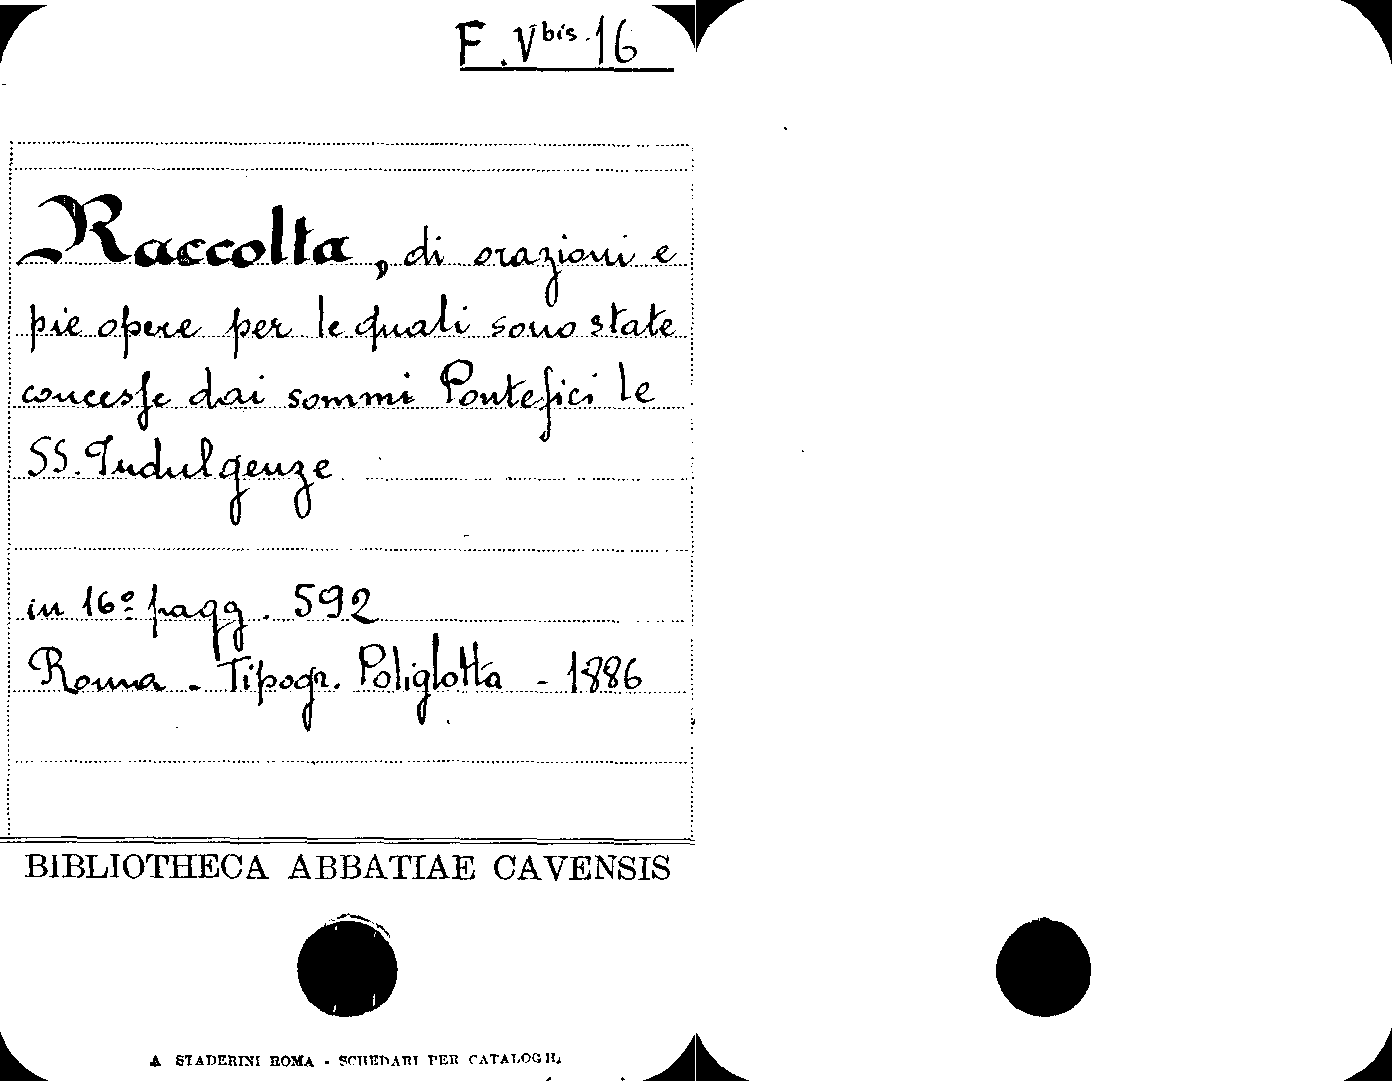 F. V bis. 16
Raccolta, di orazioni e
pie opere per le quali sono state
concesse dai sommi Pontefici le
SS. Indulgenze
in 16º pagg. 592
Roma - Tipogr. Poliglotta - 1886
BIBLIOTHECA ABBATIAE CAVENSIS
A STADERINI ROMA - SCHEDARI PER CATALOGHI